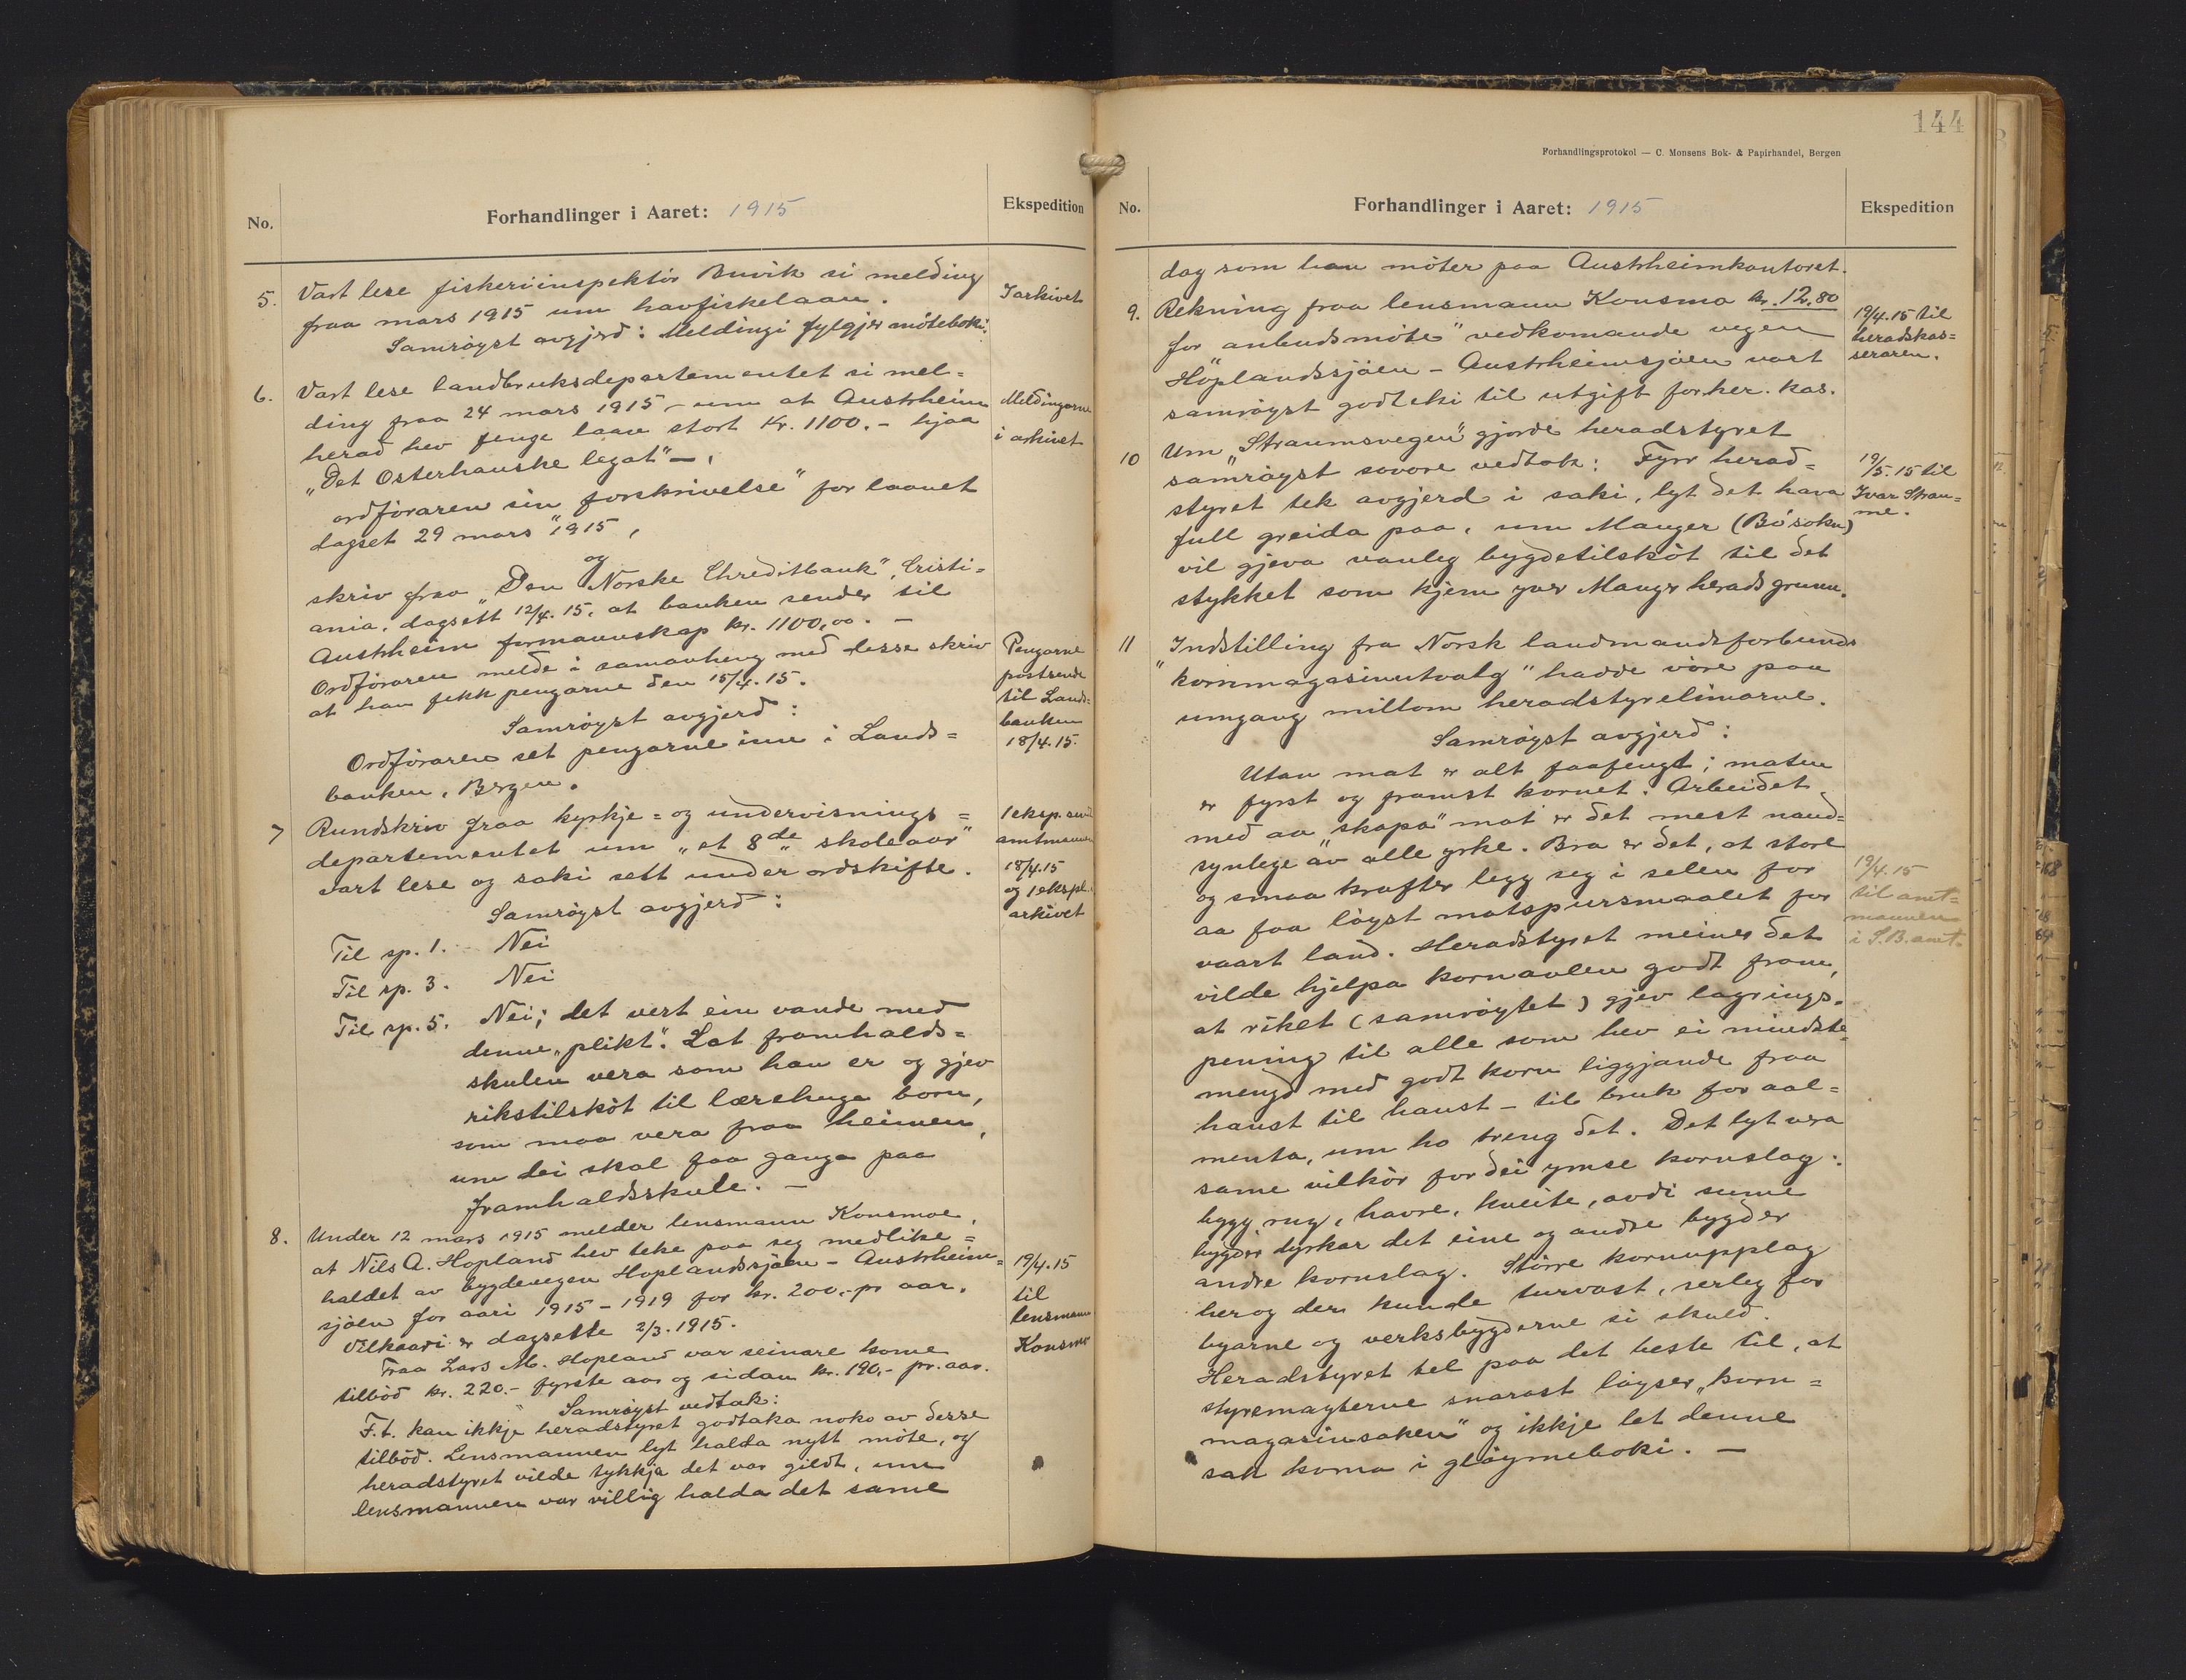 No.
Forhandlinger i Aaret: 1915
Ekspedition
5. Vart lese fiskeriinspektör Buvik si melding
fraa mars 1915 um havfiskelaan.
Samröyst avgjerd: Meldingi fylgjer möteboki.
I arkivet
6. Vart lese landbruksdepartementet si mel=
ding fraa 24 mars 1915 – um at Austrheim
herad hev fenge laan stort kr. 1100.- hjaa
„Det Osterhauske legat" – ,
ordföraren sin „forskrivelse" for laanet
dagset 29 mars 1915,
og
skriv fraa „Den Norske Chreditbank", Cristi=
ania, dagsett 12/4.15, at banken sender til
Austrheim formannskap kr. 1100,00. –
Ordföraren melde i samanheng med desse skriv
at han fekk pengarne den 15/4.15.
Samröyst avgjerd:
Ordföraren set pengarne inn i Lands=
banken, Bergen.
Meldingarne
i arkivet
Pengarne
postsende
til Lands=
banken
18/4.15.
7 Rundskriv fraa kyrkje= og undervisnings=
departementet um „et 8de skoleaar"
vart lese og saki sett under ordskifte.
Samröyst avgjerd:
Til sp. 1. Nei
Til sp. 3. Nei
Til sp. 5. Nei; det vert ein vande med
denne „plikt". Lat framhalds=
skulen vera som han er og gjev
rikstilsköt til lærehuga born,
som maa vera fraa heimen,
um dei skal faa ganga paa
framhaldsskule. –
1 eksp. send
amtmannen
18/4.15
og 1 ekspl.
arkivet
8. Under 12 mars 1915 melder lensmann Konsmoe,
at Nils A. Hopland hev teke paa seg medlike=
haldet av bygdevegen Hoplandssjöen – Austrheim=
sjöen for aari 1915 – 1919 for kr. 200,- pr aar.
Vilkaari er dagsette 2/3.1915.
Fraa Lars M. Hopland var seinare kome
tilböd kr. 220.- fyrste aar og sidan kr. 190,- pr. aar.
Samröyst vedtak:
F.t. kan ikkje heradstyret godtaka noko av desse
tilböd. Lensmannen lyt halda nytt möte, og
heradstyret vilde tykkja det var gildt, um
lensmannen var villig halda det same
19/4.15
til
lensmann
Konsmo
144
Forhandlingsprotokol — C. Monsens Bok- & Papirhandel, Bergen
No.
Forhandlinger i Aaret: 1915
Ekspedition
dag som han möter paa Austrheimkontoret.
9. Rekning fraa lensmann Konsmo kr. 12.80
for „anbudsmöte" vedkomande vegen
Höplandssjöen – Austrheimsjöen vart
samröyst godteki til utgift for her. kas.
19/4.15 til
heradskas=
seraren.
10 Um „Straumsvegen" gjorde heradstyret
samröyst sovore vedtak: Fyrr herad=
styret tek avgjerd i saki, lyt det hava
full greida paa, um Manger (Bö sokn)
vil gjeva vanleg bygdetilsköt til det
stykket som kjem yver Manger herads grunn.
19/5.15 til
Ivar Strau=
me.
11 Indstilling fra Norsk landmandsforbunds
"kornmagasinutvalg" hadde vöre paa
umgang millom heradstyrelimarne.
Samröyst avgjerd:
Utan mat er alt faafengt; maten
er fyrst og framst kornet. Arbeidet
med aa „skapa" mat er det mest naud=
synlege av alle yrke. Bra er det, at store
og smaa krafter legg seg i selen for
aa faa löyst matspursmaalet for
vaart land. Heradstyret meiner det
vilde hjelpa kornavlen godt fram,
at riket (samröytet) gjev lagrings=
pening til alle som hev ei mindste=
mengd med godt korn liggjande fraa
haust til haust – til bruk for aal=
menta, um ho treng det. Det lyt vera
same vilkör for dei ymse kornslag:
bygg, rug, havre, kveite, avdi sume
bygder dyrkar det eine og andre bygder
andre kornslag. Större kornupplag
her og der kunde turvast, serleg for
byarne og verksbygderne si skuld.
Heradstyret tel paa det beste til, at
styremagterne snarast löyser „korn=
magasinsaken" og ikkje let denne
sak koma i glöymeboki. –
19/4.15
til amt=
mannen
i S.B. amt.